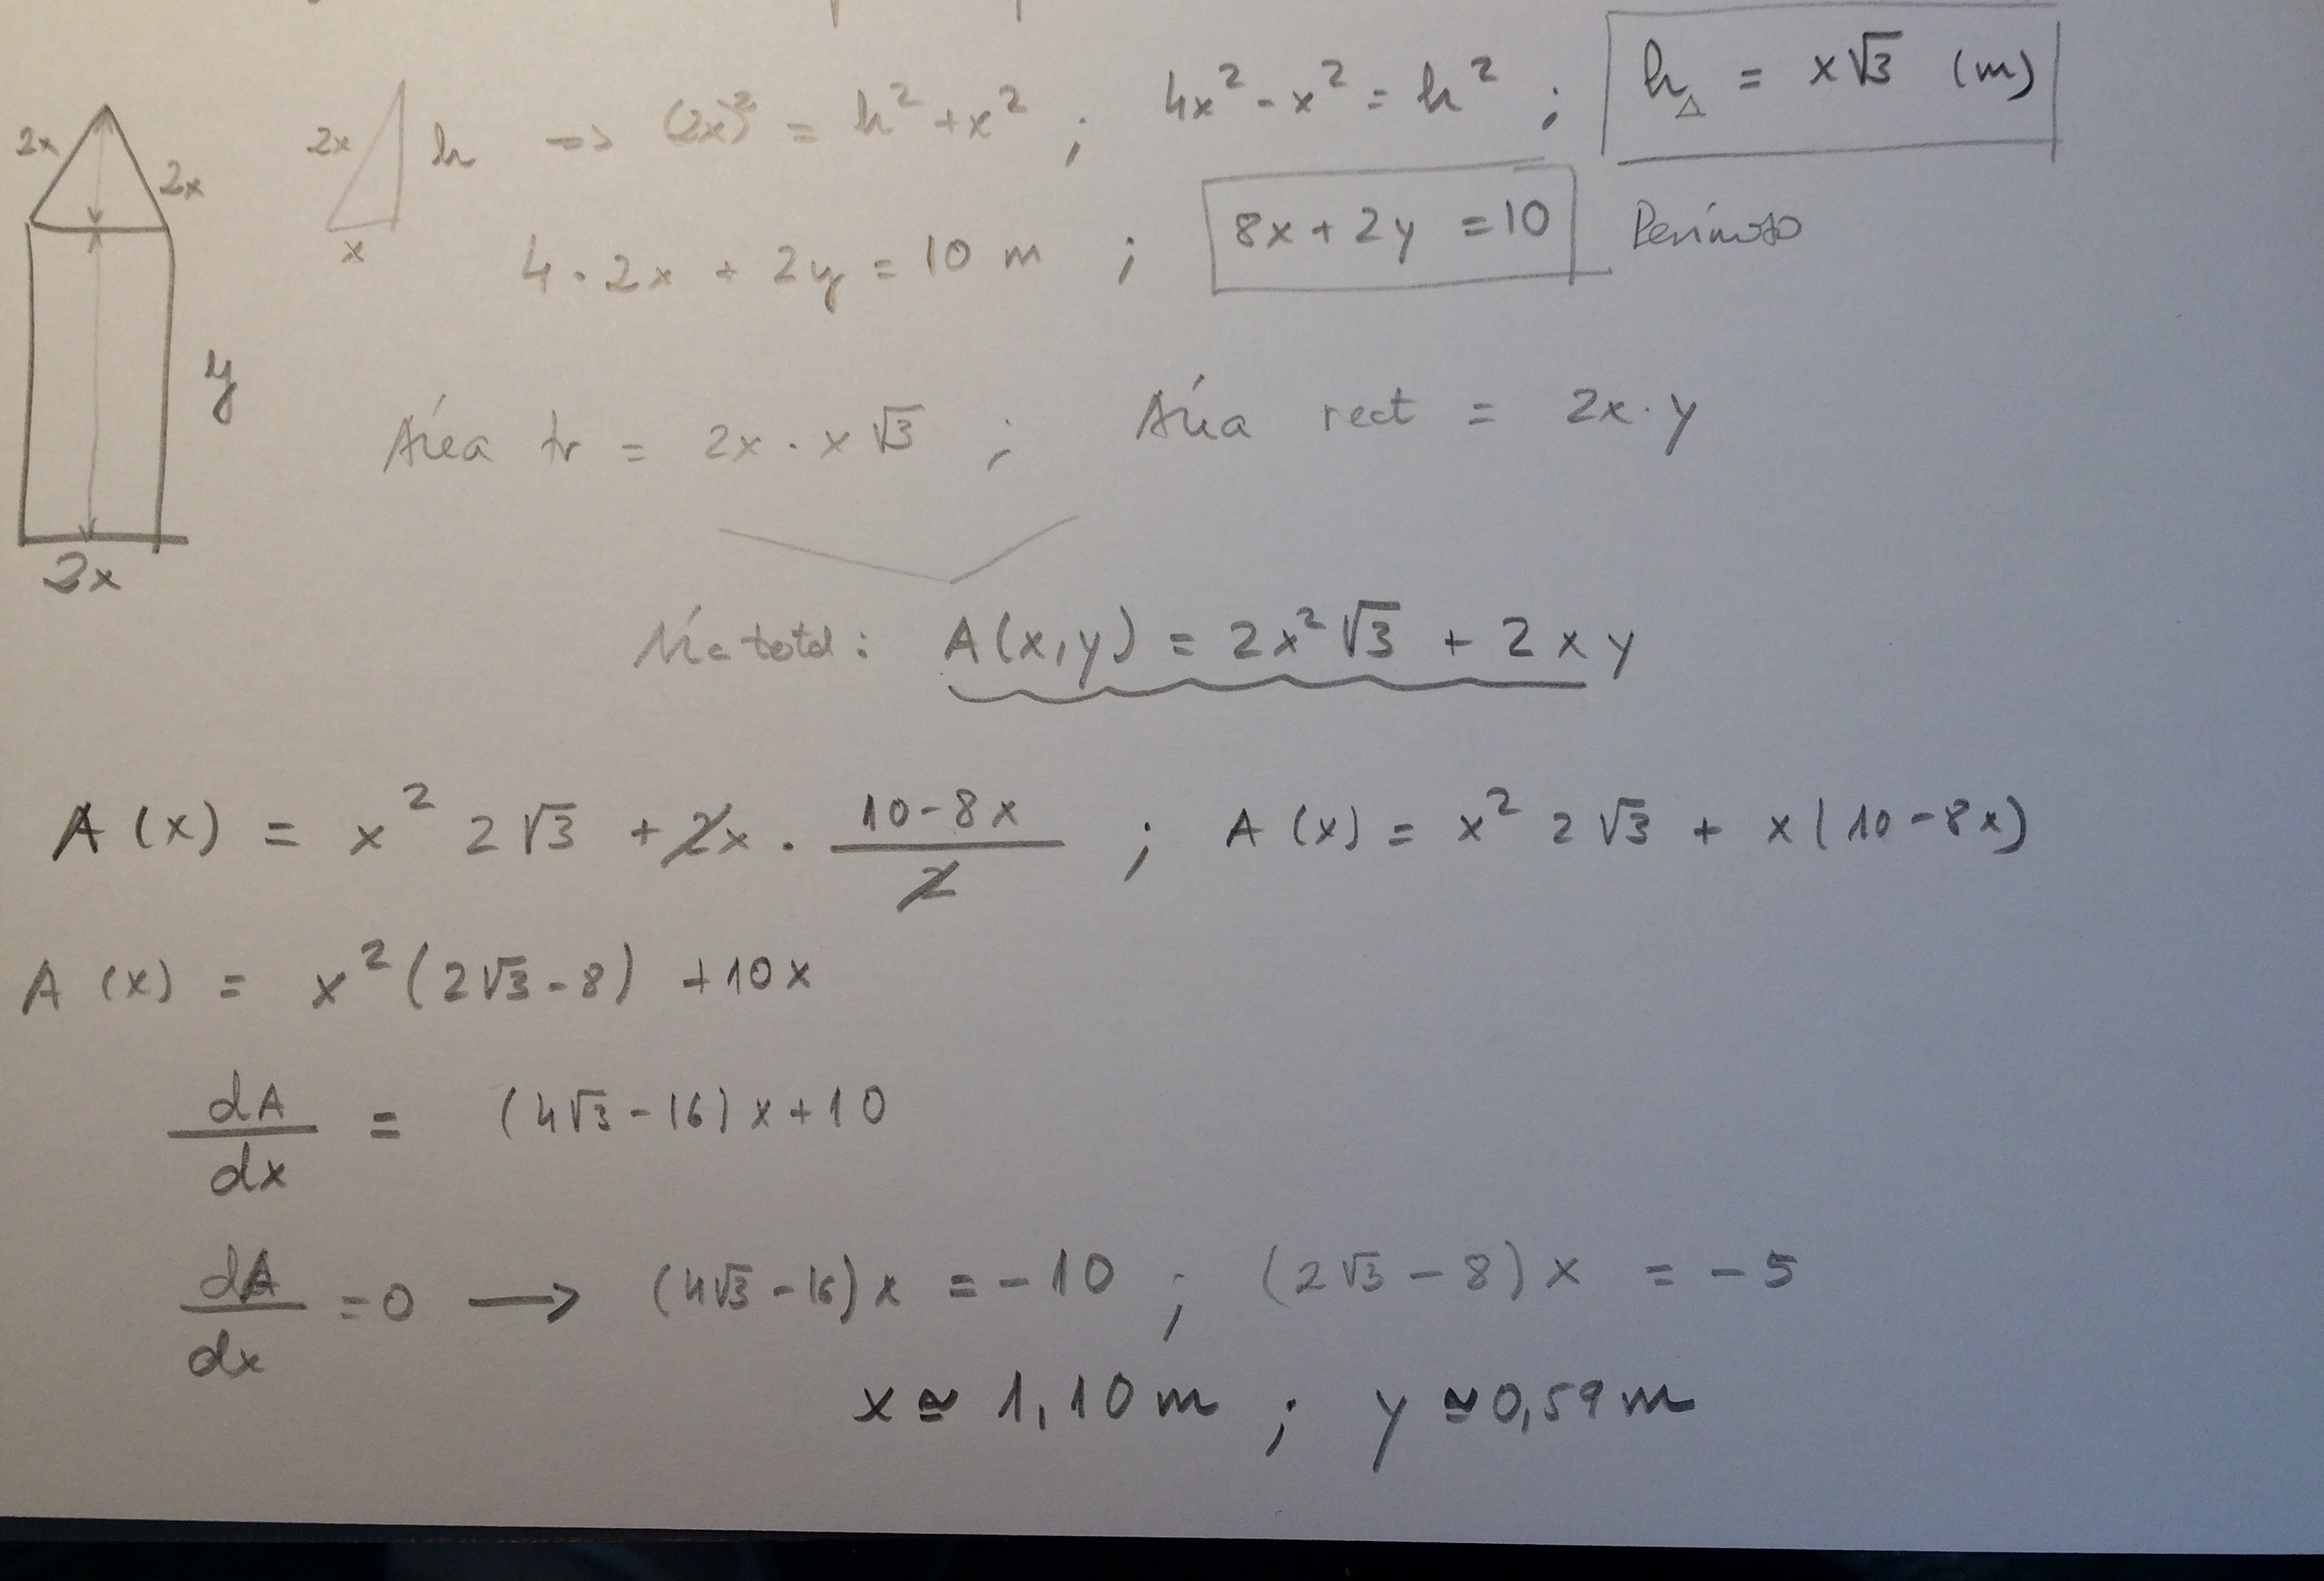 2x 2x h => (2x)² = h² + x² ; 4x² - x² = h² ; h△ = x√3 (m)
2x
x 4 · 2x + 2y = 10 m ; 8x + 2y = 10 Perímetro
y
Área tr = 2x · x√3 ; Área rect = 2x · y
2x
Área total: A(x,y) = 2x²√3 + 2xy
A(x) = x² 2√3 + 2x · (10-8x)/2 ; A(x) = x² 2√3 + x(10-8x)
A(x) = x²(2√3-8) + 10x
dA/dx = (4√3-16)x + 10
dA/dx = 0 → (4√3-16)x = -10 ; (2√3-8)x = -5
x ≃ 1,10 m ; y ≃ 0,59 m